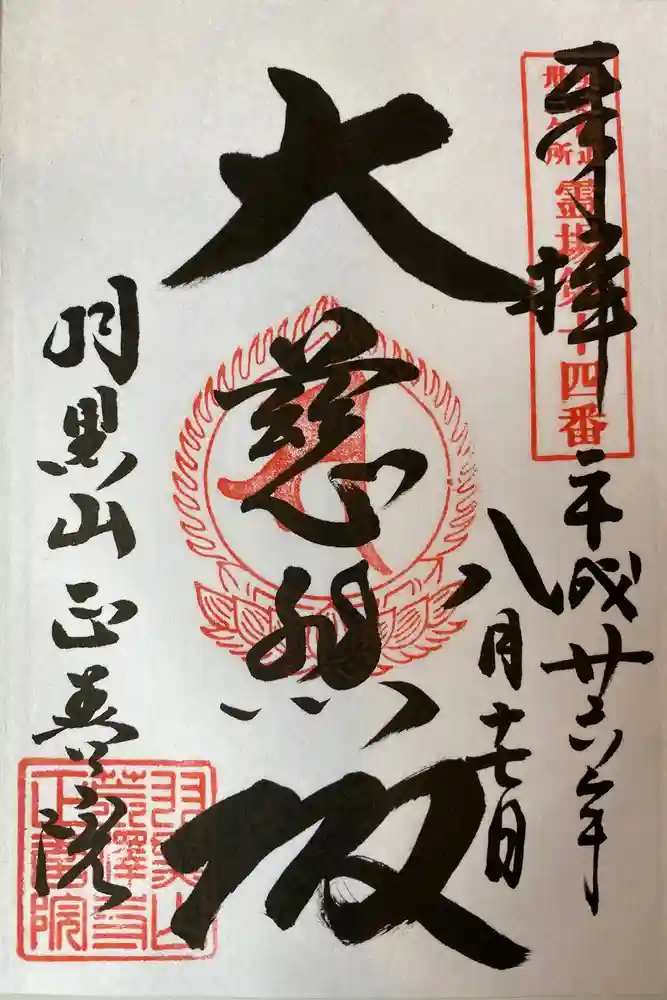 奉拝
霊場第十四番
平成廿六年
八月十七日
大慈悲殿
羽黒山正善院
羽黒山
荒澤寺
正善院